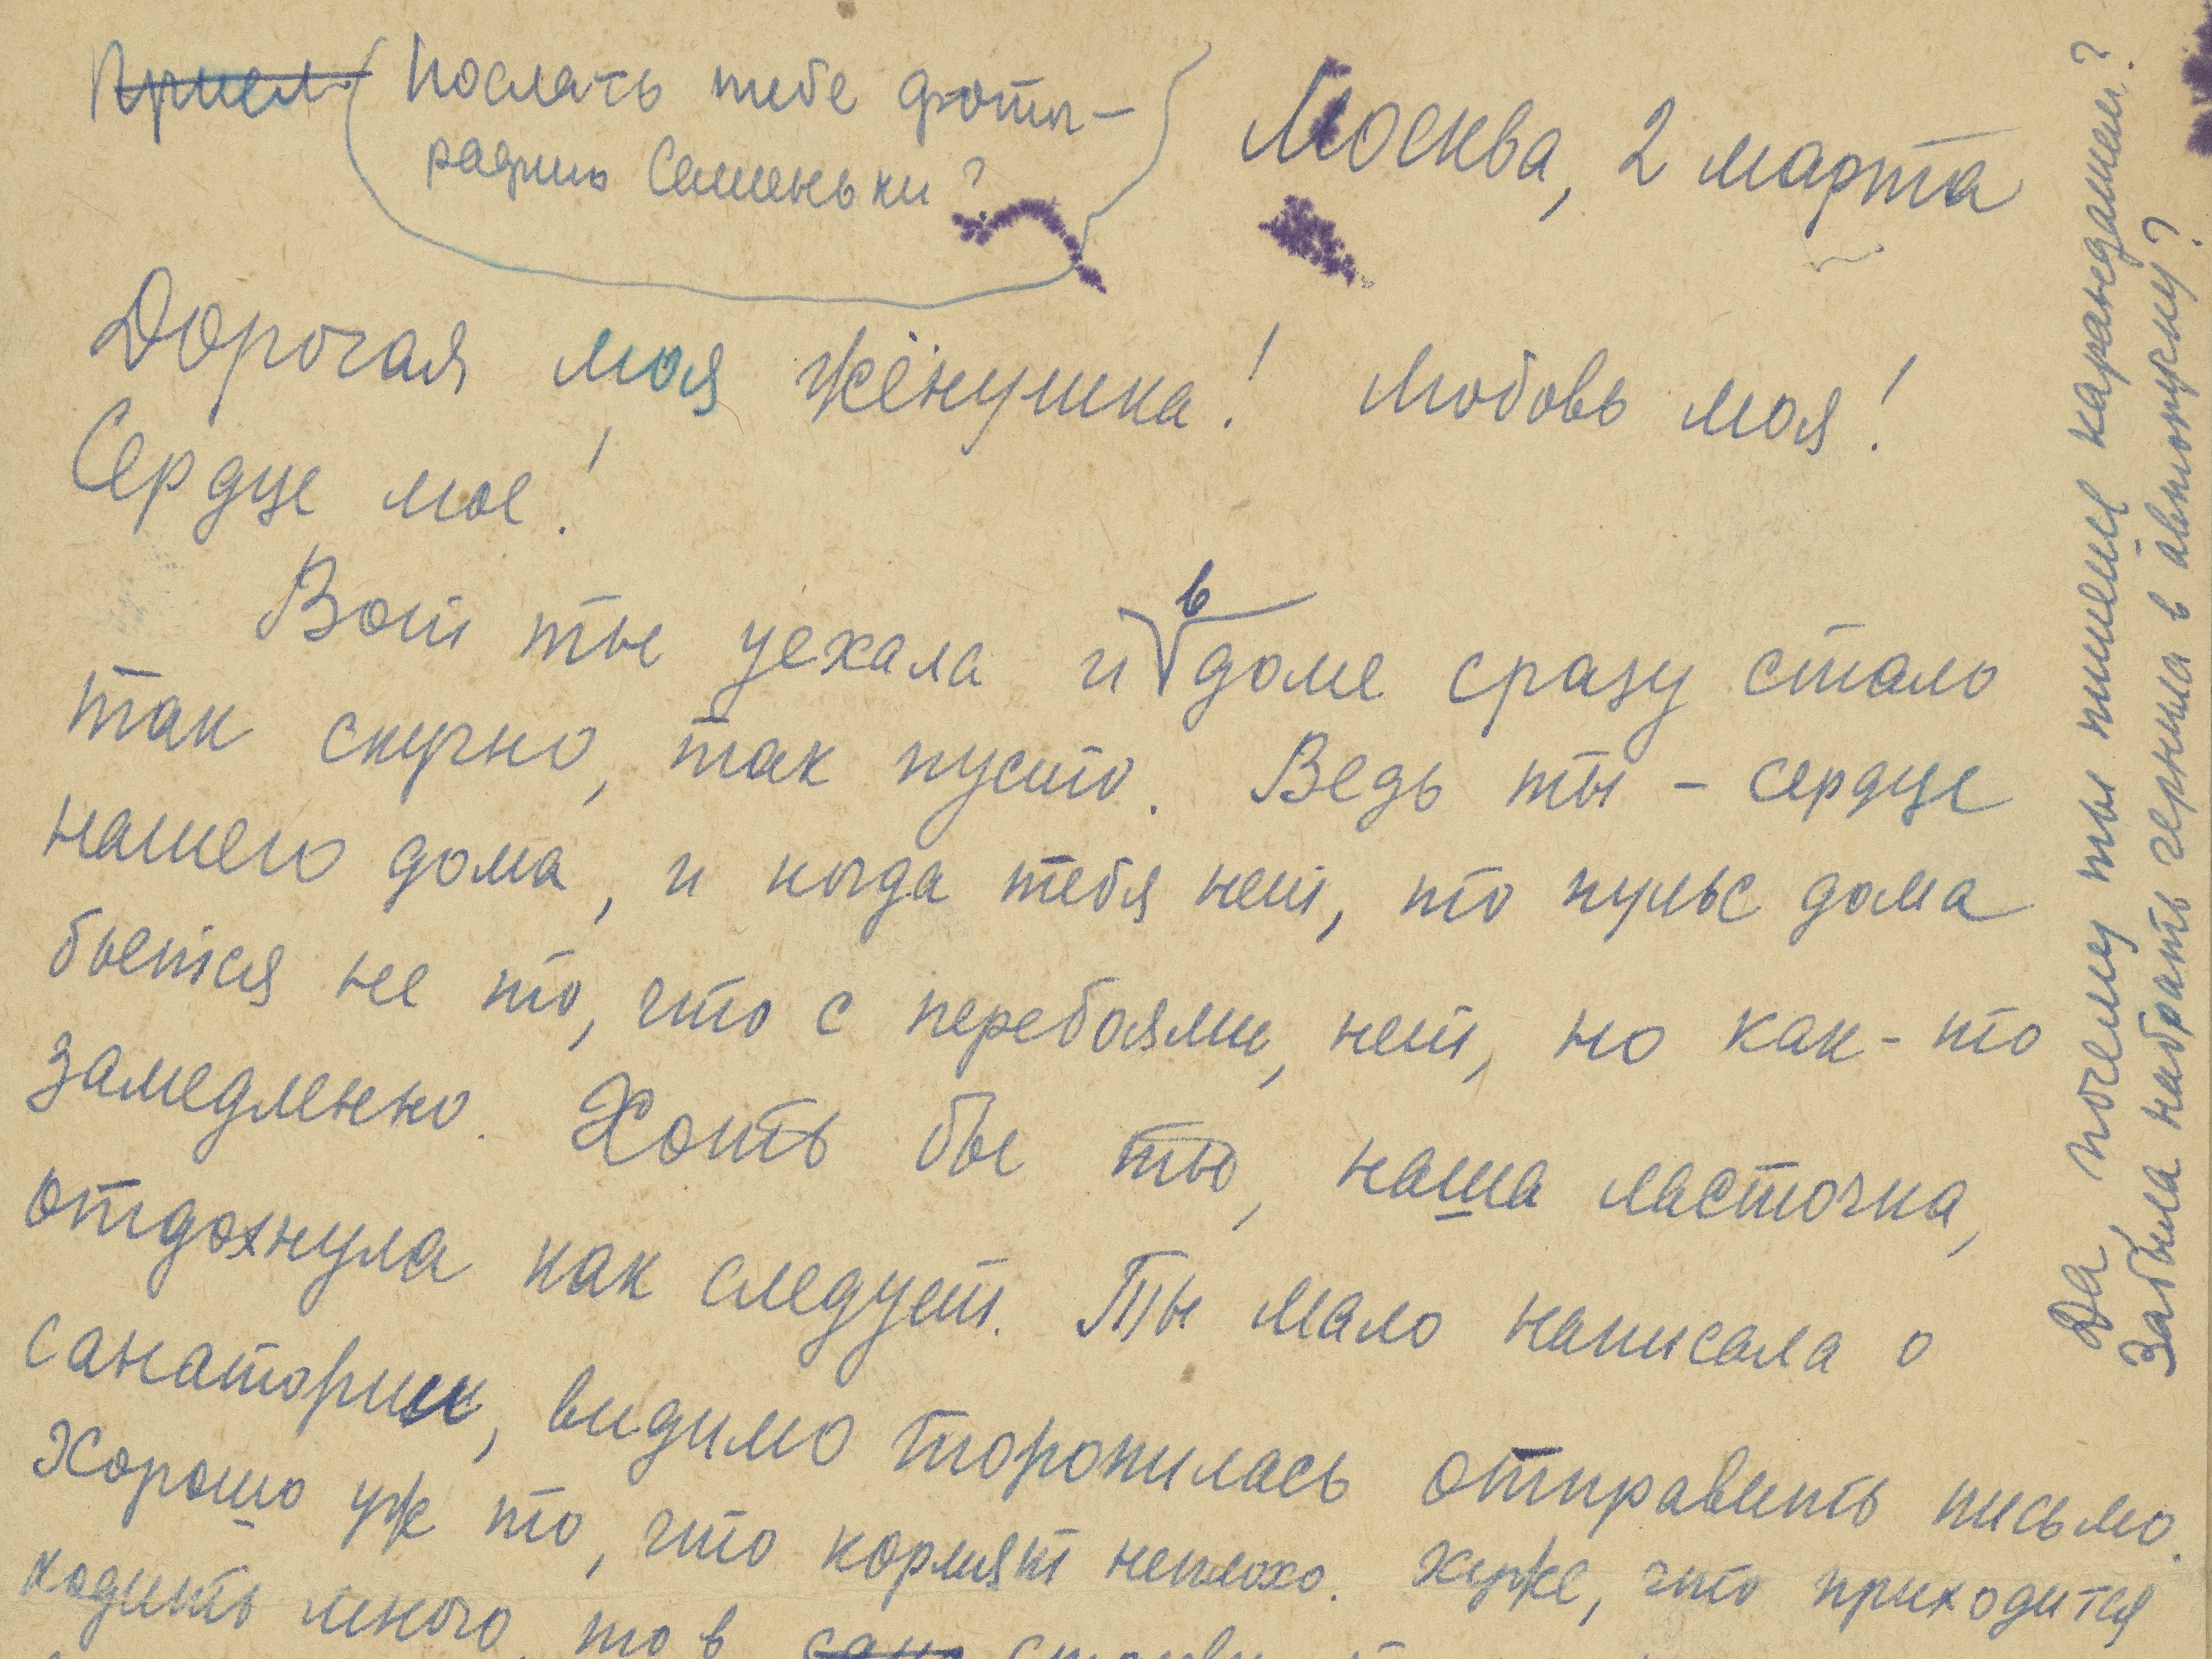 Послать тебе фото-
радию Сашеньки?
Москва, 2 марта
Дорогая моя жёнушка! Любовь моя!
Сердце мое!
Вот ты уехала и в доме сразу стало
так скучно, так пусто. Ведь ты - сердце
нашего дома, и когда тебя нет, то пульс дома
бьется не то, что с перебоями, нет, но как-то
замедленно. Хоть бы ты, наша ласточка,
отдохнула как следует. Ты мало написала о
санатории, видимо торопилась отправить письмо.
Хорошо уж то, что кормят неплохо. Хуже, что приходится
ходить много, то в
Да, почему ты пишешь карандашем?
Забыла набрать чернила в авторучку?